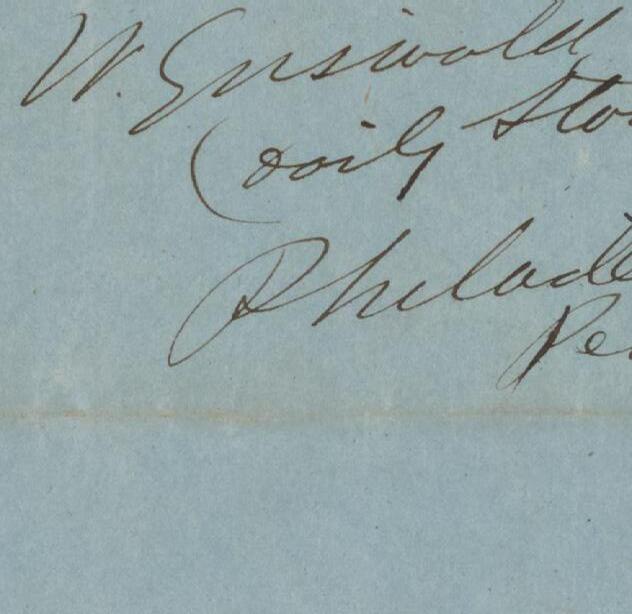 W. Griswold
(daily Sta
Philade
Pe